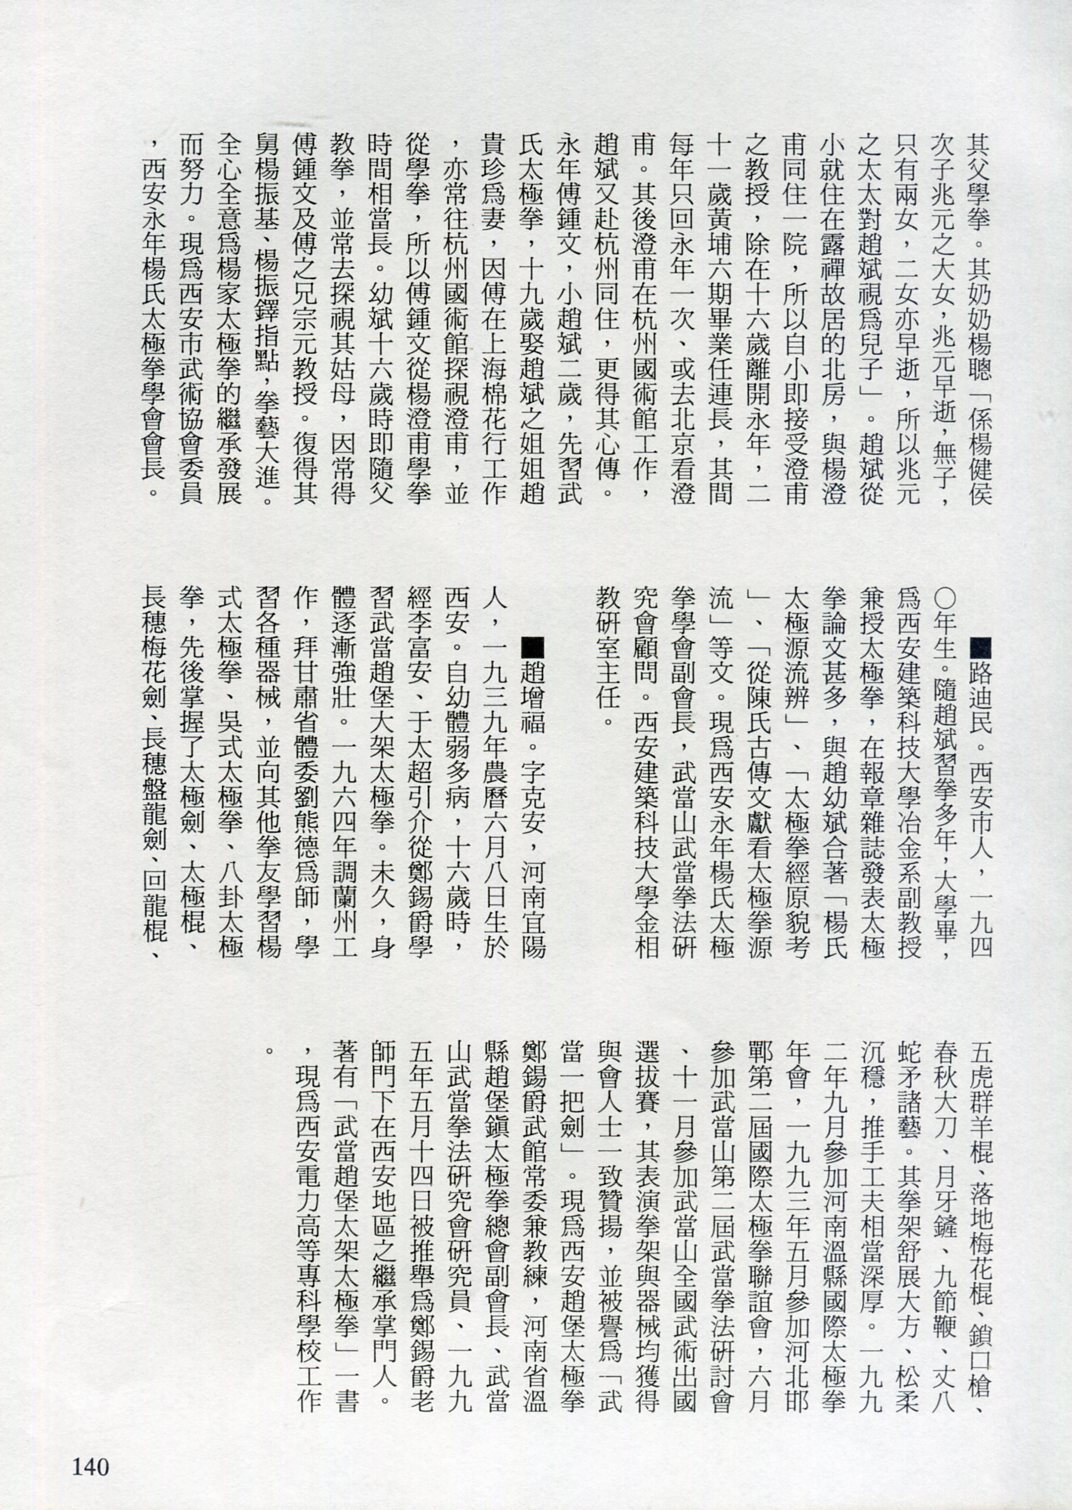 其父學拳。其奶奶楊聰「係楊健侯
次子兆元之大女，兆元早逝，無子，
只有兩女，二女亦早逝，所以兆元
之太太對趙斌視爲兒子」。趙斌從
小就住在露禪故居的北房，與楊澄
甫同住一院，所以自小即接受澄甫
之教授，除在十六歲離開永年，二
十一歲黃埔六期畢業任連長，其間
每年只回永年一次、或去北京看澄
甫。其後澄甫在杭州國術館工作，
趙斌又赴杭州同住，更得其心傳。
永年傅鍾文，小趙斌二歲，先習武
氏太極拳，十九歲娶趙斌之姐姐趙
貴珍爲妻，因傅在上海棉花行工作
，亦常往杭州國術館探視澄甫，並
從學拳，所以傅鍾文從楊澄甫學拳
時間相當長。幼斌十六歲時即隨父
教拳，並常去探視其姑母，因常得
傅鍾文及傅之兄宗元教授。復得其
舅楊振基、楊振鐸指點，拳藝大進。
全心全意爲楊家太極拳的繼承發展
而努力。現爲西安市武術協會委員
，西安永年楊氏太極拳學會會長。
■路迪民。西安市人，一九四
〇年生。隨趙斌習拳多年，大學畢，
爲西安建築科技大學冶金系副教授
兼授太極拳，在報章雜誌發表太極
拳論文甚多，與趙幼斌合著「楊氏
太極源流辨」、「太極拳經原貌考
」、「從陳氏古傳文獻看太極拳源
流」等文。現爲西安永年楊氏太極
拳學會副會長，武當山武當拳法研
究會顧問。西安建築科技大學金相
教研室主任。
■趙增福。字克安，河南宜陽
人，一九三九年農曆六月八日生於
西安。自幼體弱多病，十六歲時，
經李富安、于太超引介從鄭錫爵學
習武當趙堡大架太極拳。未久，身
體逐漸強壯。一九六四年調蘭州工
作，拜甘肅省體委劉熊德爲師，學
習各種器械，並向其他拳友學習楊
式太極拳、吳式太極拳、八卦太極
拳，先後掌握了太極劍、太極棍、
長穗梅花劍、長穗盤龍劍、回龍棍、
五虎群羊棍、落地梅花棍、鎖口槍、
春秋大刀、月牙鏟、九節鞭、丈八
蛇矛諸藝。其拳架舒展大方、松柔
沉穩，推手工夫相當深厚。一九九
二年九月參加河南溫縣國際太極拳
年會，一九九三年五月參加河北邯
鄲第二屆國際太極拳聯誼會，六月
參加武當山第二屆武當拳法研討會
、十一月參加武當山全國武術出國
選拔賽，其表演拳架與器械均獲得
與會人士一致贊揚，並被譽爲「武
當一把劍」。現爲西安趙堡太極拳
鄭錫爵武館常委兼教練，河南省溫
縣趙堡鎮太極拳總會副會長、武當
山武當拳法研究會研究員、一九九
五年五月十四日被推舉爲鄭錫爵老
師門下在西安地區之繼承掌門人。
著有「武當趙堡太架太極拳」一書
，現爲西安電力高等專科學校工作
。
140